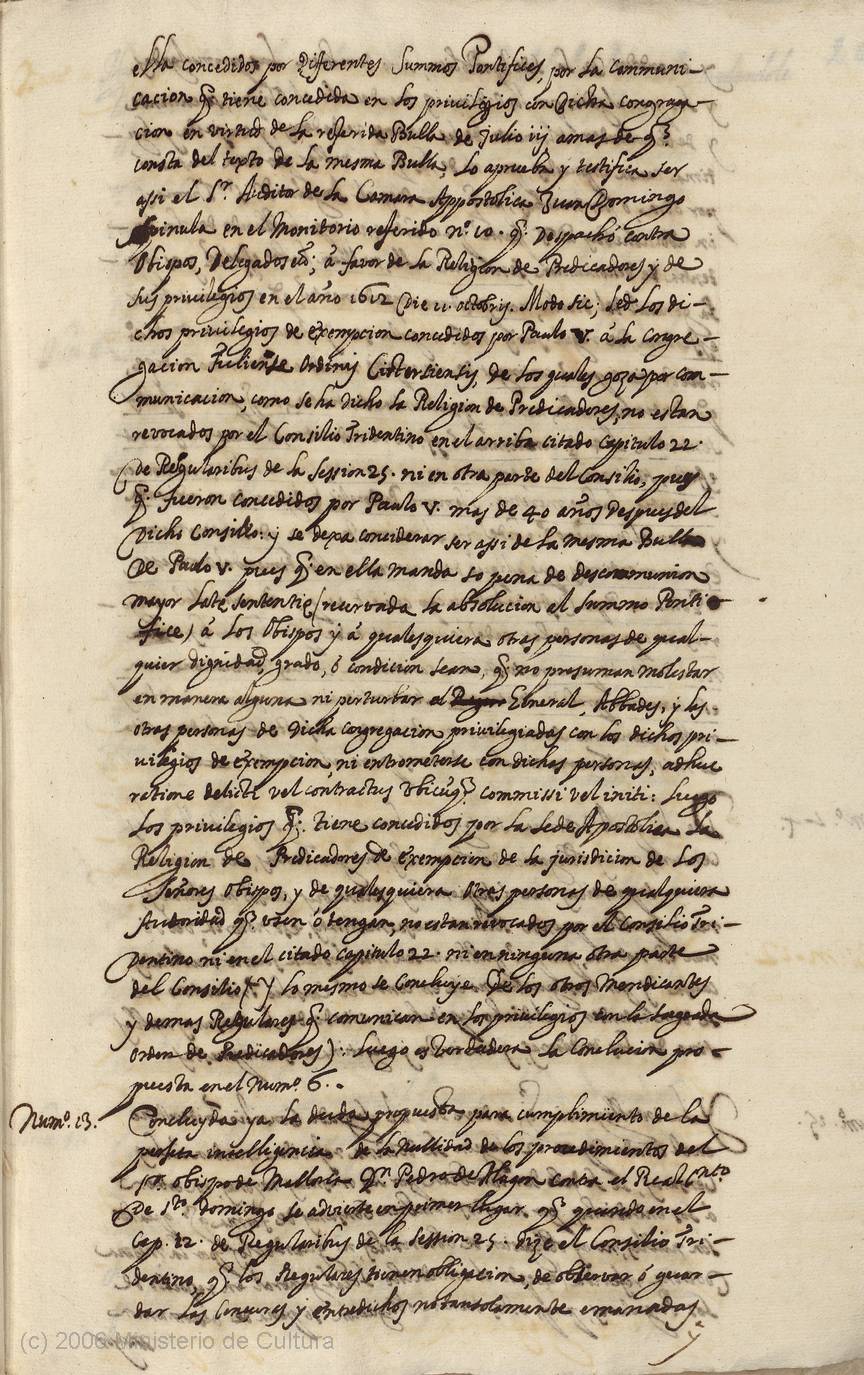 ella concedidos por Diferentes Summos Pontifices, por la communi-
cacion q̃ tiene concedida en los privilegios con Dicha congrega-
cion en virtud de la referida Bulla de Julio iij amas de q̃.
consta del texto de la mesma Bulla, lo aprueba y testifica ser
assi el Sr. Auditor de la Camara Appostolica Juan Domingo
Spinula en el Monitorio referido no. 10. q̃. Despachó contra
Obispos, Delegados etc; á favor de la Religion de Predicadores y de
sus privilegios en el año 1612 Die 11. octobris. Modo sic; sed los di-
chos privilegios de exempcion concedidos por Paulo v. á la Congre-
gacion Fuliense Ordinis Cisterciensis, de los quales goza por com-
municacion, como se ha Dicho la Religion de Predicadores, no estan
revocados por el Consilio Tridentino en el arriba citado capitulo 22.
de Regularibus de la Session 25. ni en otra parte del Consilio, pues
q̃. fueron concedidos por Paulo v. mas de 40 años Despues del
Dicho Consilio: y se dexa conciderar ser assi de la mesma Bulla
De Paulo v. pues q̃. en ella manda so pena de descomunion
mayor latę sententię (reservada la absolucion el Summo Ponti-
fice) á los Obispos y á qualesquiera otras personas de qual-
quier dignidad, grado, ó condicion sean, q̃ no presuman molestar
en manera alguna ni perturbar al General, Abbades, y las
otras personas de Dicha congregacion privilegiadas con los dichos pri-
vilegios de exempcion, ni entrometerse con dichas personas, adhuc
ratione delicti vel contractus ubicuq̃. commissi vel initi: Luego
Los privilegios q̃. tiene concedidos por la Sede Apostolica la
Religion de Predicadores de exempcion de la jurisdicion de Los
Señores Obispos, y de qualesquiera otras personas de qualquiera
Autoridad q̃. usen ó tengan, no estan revocados por el Consilio Tri-
dentino ni en el citado capitulo 22. ni en ninguna otra parte
del Consilio (Y lo mesmo se Concluye De los otros Mendicantes
y demas Regulares q̃ comunican en los privilegios con la Sagrada
Orden de Predicadores): Luego es Verdadera la Conclucion pro-
puesta en el Numo. 6..
Numo. 13. Concluyda ya la duda propuesta para cumplimiento de la
perfeta intelligencia de la Nullidad de los procedimientos del
Sr. obispo de Mallorca Dn. Pedro de Alagon contra el Real Cnto
De Sto. Domingo se advierte en primer lugar q̃ quando en el
Cap. 12. de Regularibus de la Session 25. dize el Consilio Tri-
dentino, q̃ los Regulares tienen obligacion, de observar ó guar-
dar las Censures y entredichos no tan solamente emanadas
y